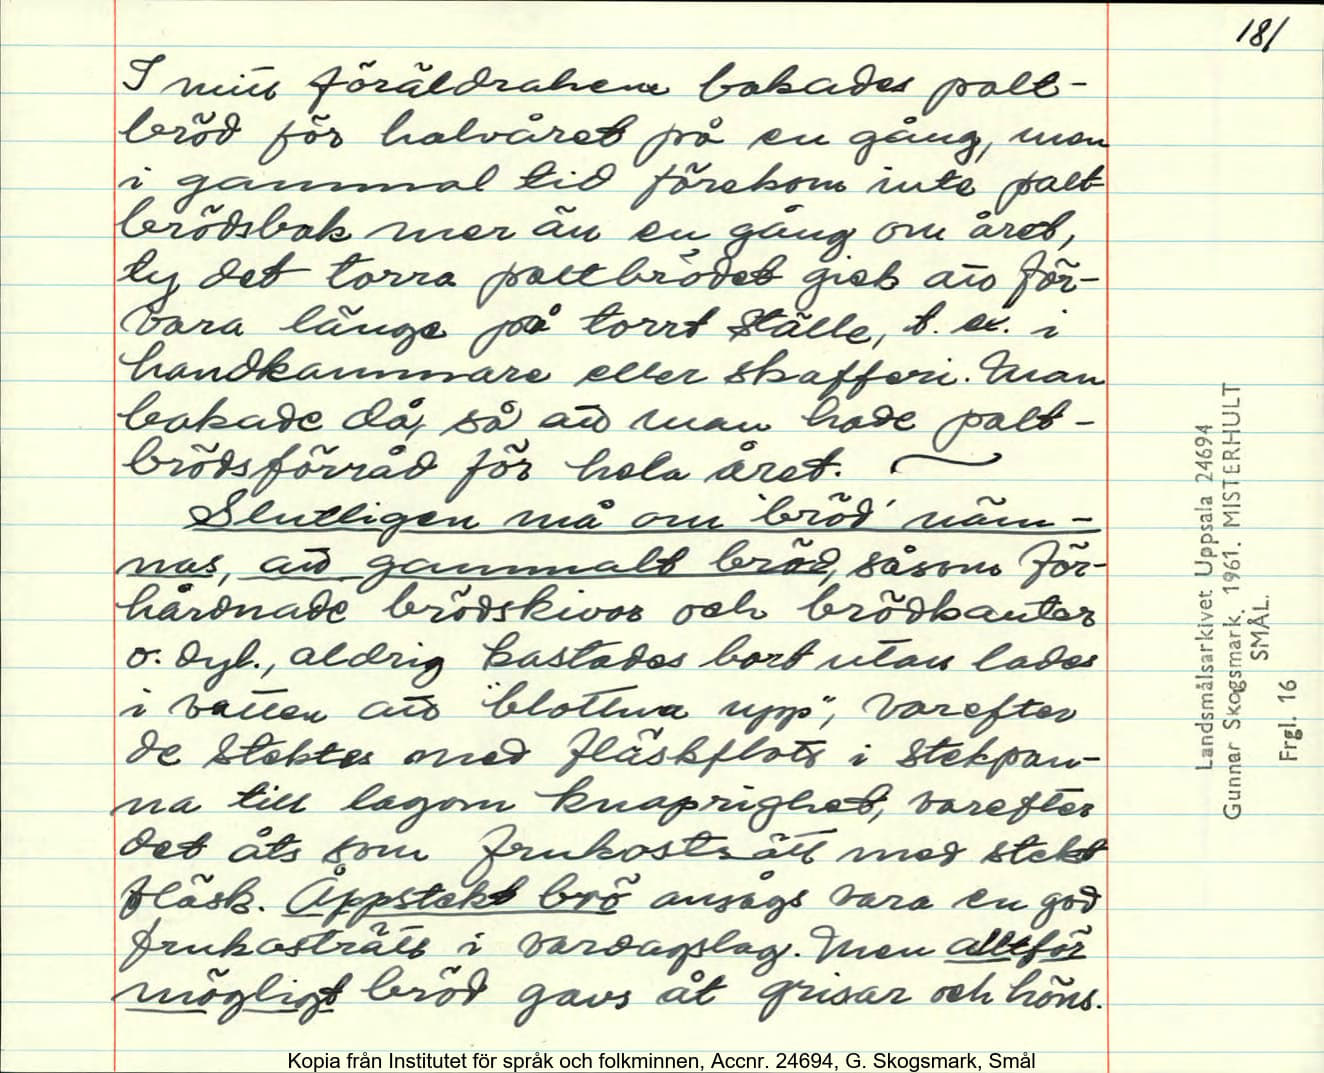 181
I mitt föräldrahem bakades palt-
bröd för halvåret på en gång, men
i gammal tid förekom inte palt-
brödsbak mer än en gång om året,
ty det torra paltbrödet gick att för-
vara länge på torrt ställe, t. ex. i
handkammare eller skafferi. Man
bakade då, så att man hade palt-
brödsförråd för hela året.
Slutligen må om 'bröd' näm-
nas, att gammalt bröd, såsom för-
hårdnade brödskivor och brödkanter
o. dyl., aldrig kastades bort utan lades
i vatten att "blottna upp", varefter
de stektes med fläskflott i stekpan-
na till lagom knaprighet, varefter
det åts som frukosträtt med stekt
fläsk. Åppstekt brö ansågs vara en god
frukosträtt i vardagslag. Men alltför
mögligt bröd gavs åt grisar och höns.
Landsmålsarkivet Uppsala 24694
Gunnar Skogsmark. 1961. MISTERHULT
SMÅL.
Frgl. 16
Kopia från Institutet för språk och folkminnen, Accnr. 24694, G. Skogsmark, Smål